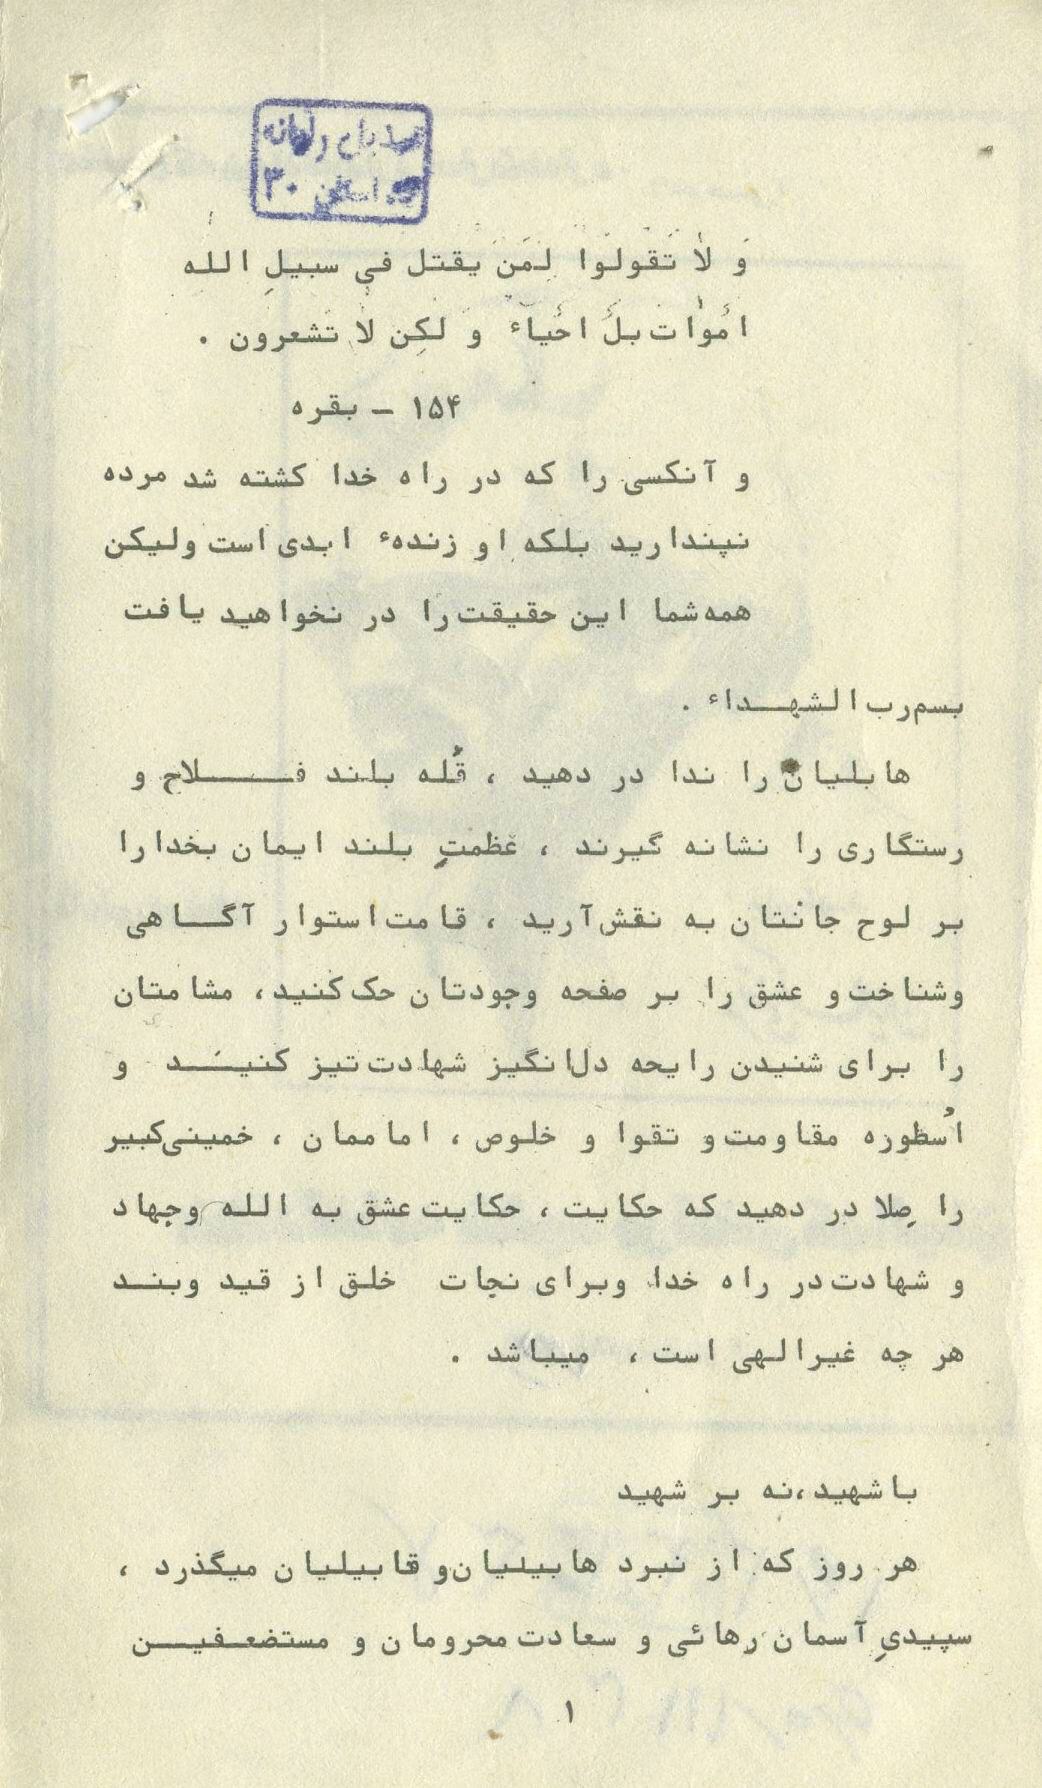 و لا تقولوا لمن یقتل فی سبیل الله
اموات بل احیاء و لکن لا تشعرون .
۱۵۴ - بقره
و آنکسی را که در راه خدا کشته شد مرده
نپندارید بلکه او زندهء ابدی است ولیکن
همه شما این حقیقت را در نخواهید یافت
بسم رب الشهداء .
هابلیان را ندا در دهید ، قُله بلند فلاح و
رستگاری را نشانه گیرند ، عظمتِ بلند ایمان بخدا را
بر لوح جانتان به نقش آرید ، قامت استوار آگاهی
وشناخت و عشق را بر صفحه وجودتان حک کنید ، مشامتان
را برای شنیدن رایحه دل انگیز شهادت تیز کنید و
اُسطوره مقاومت و تقوا و خلوص ، اماممان ، خمینی کبیر
را صلا در دهید که حکایت ، حکایت عشق به الله وجهاد
و شهادت در راه خدا وبرای نجات خلق از قید وبند
هر چه غیرالهی است ، میباشد .
با شهید ،نه بر شهید
هر روز که از نبرد هابیلیان و قابیلیان میگذرد ،
سپیدیِ آسمان رهائی و سعادت محرومان و مستضعفین
۱
۳۰